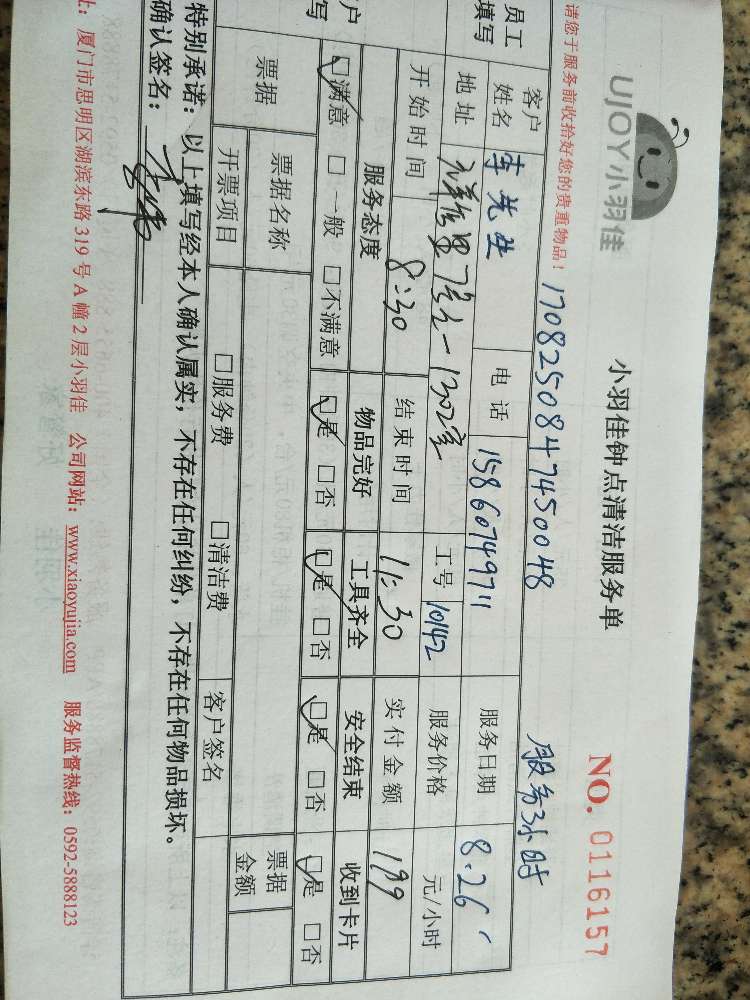 UJOY小羽佳
小羽佳钟点清洁服务单
NO. 0116157
请您于服务前收拾好您的贵重物品！
17082508474450048
服务3小时
员工填写
客户姓名 李先生 电话 15860749711 服务日期 8.26
地址 1302室 工号 10142 服务价格 元/小时
开始时间 8:30 结束时间 11:30 实付金额 199
户
写
服务态度 物品完好 工具齐全 安全结束 收到卡片
☑满意 □一般 □不满意 ☑是 □否 ☑是 □否 ☑是 □否 ☑是 □否
票据 票据名称 票据金额
开票项目 □服务费 □清洁费 客户签名
特别承诺：以上填写经本人确认属实，不存在任何纠纷，不存在任何物品损坏。
确认签名：
址：厦门市思明区湖滨东路319号A幢2层小羽佳 公司网站：www.xiaoyujia.com 服务监督热线：0592-5888123